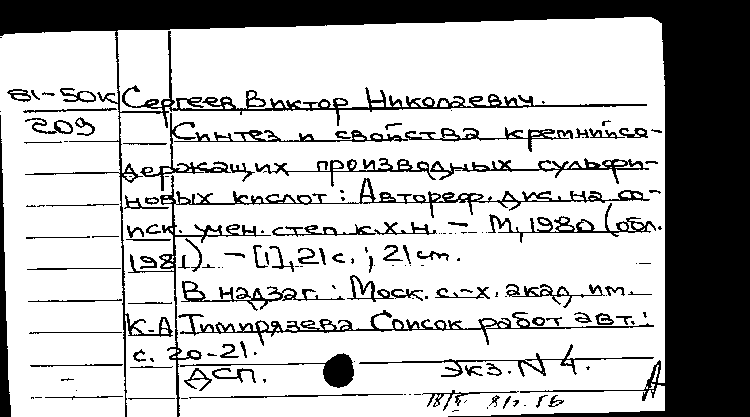 81-50к Сергеев, Виктор Николаевич.
209 Синтез и свойства кремнийсо-
держащих производных сульфи-
новых кислот : Автореф. дис. на со-
иск. учен. степ. к.х.н. – М, 1980 (обл.
1981). – [1], 21 с. ; 21 см.
В надзаг. : Моск. с.-х. акад. им.
К.А Тимирязева Список работ авт. :
с. 20-21.
ДСП. Экз. N 4.
А